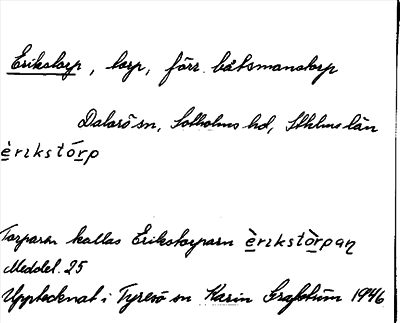 Erikstorp, torp, förr båtsmanstorp
Dalarö sn, Sotholms hd, Sthlms län
èrıkstórp
Torparen kallas Erikstorparn èrıkstòrpaƞ
Meddel. 25
Upptecknat i Tyresö sn Karin Grafström 1946